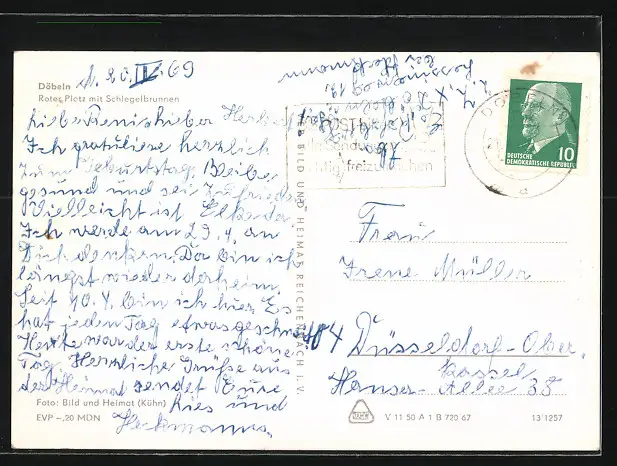 d. 20. IV. 69
Döbeln
Roter Platz mit Schlegelbrunnen
Liebe Reni, lieber Herbert
Ich gratuliere herzlich
zum Geburtstag. Bleibe
gesund und sei zufrieden.
Vielleicht ist Elke da.
Ich werde am 29.4. an
Dich denken. Da bin ich
längst wieder daheim.
Seit 10.4. bin ich hier. Es
hat jeden Tag etwas geschneit
Heute war der erste schöne
Tag. Herzliche Grüße aus
der Heimat sendet Eure
Ries und
Heckmanns.
Foto: Bild und Heimat (Kühn)
EVP -,20 MDN
BILD UND HEIMAT REICHENBACH I. V.
bei Heckmann
DEUTSCHE
DEMOKRATISCHE REPUBLIK
10
Frau
Irene Müller
404 Düsseldorf-Ober
kassel
Hansa-Allee 38
V 11 50 A 1 B 720/67
13 1257